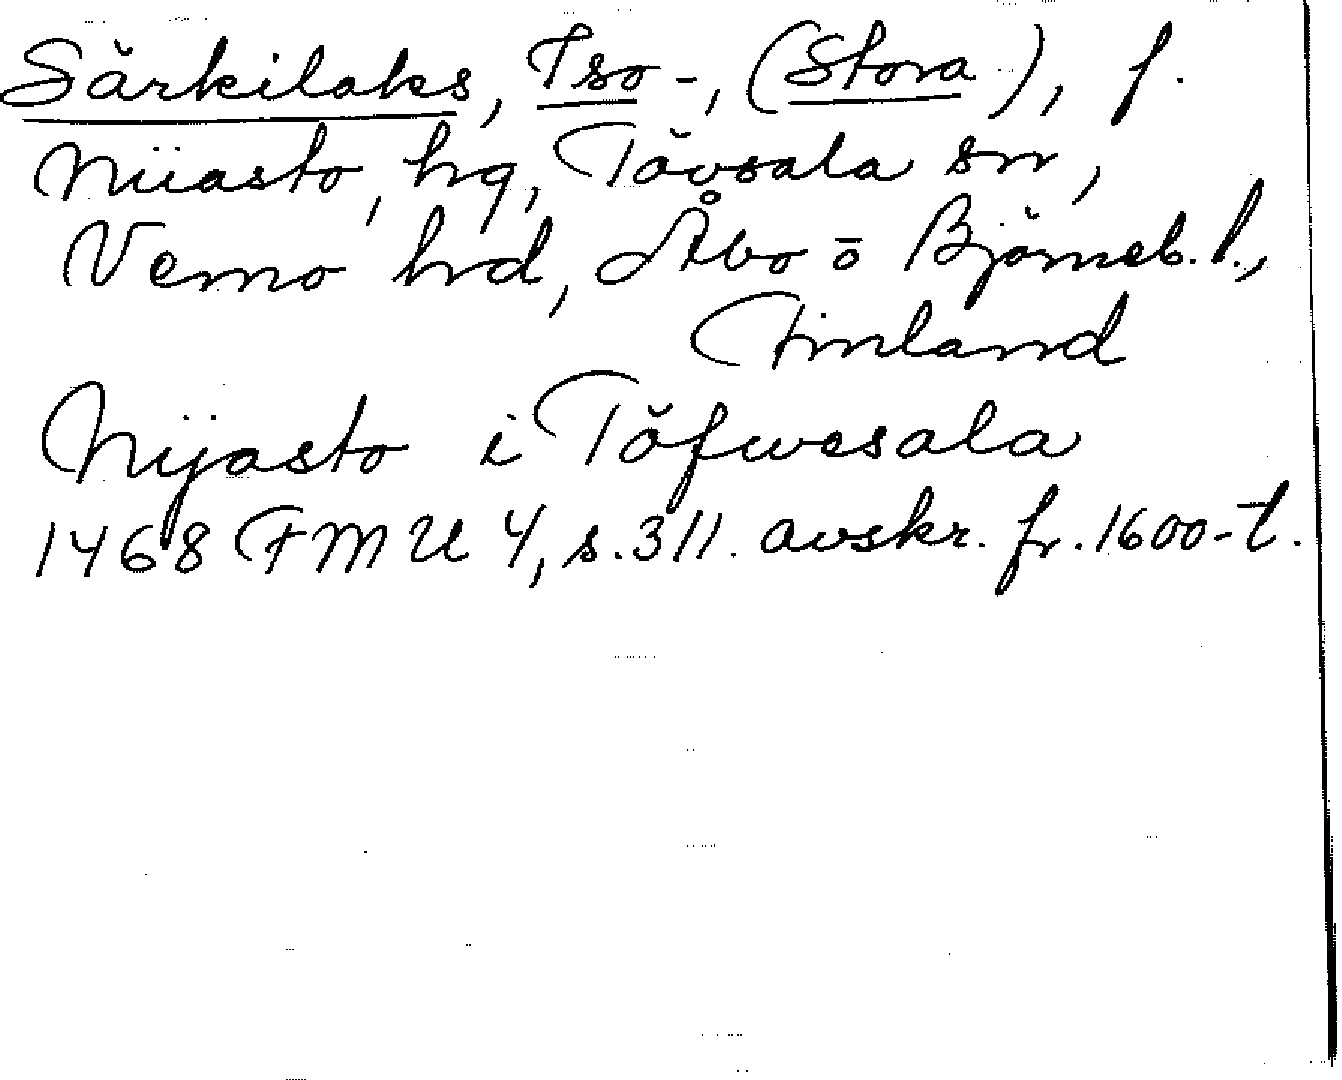 Särkilaks, Iso-, (Stora), f.
Niiasto, hg, Tövsala sn,
Vemo hd, Åbo o Björneb. l.,
Finland
Nijasto i Töfwesala
1468 FMU 4, s. 311. avskr. fr. 1600-t.